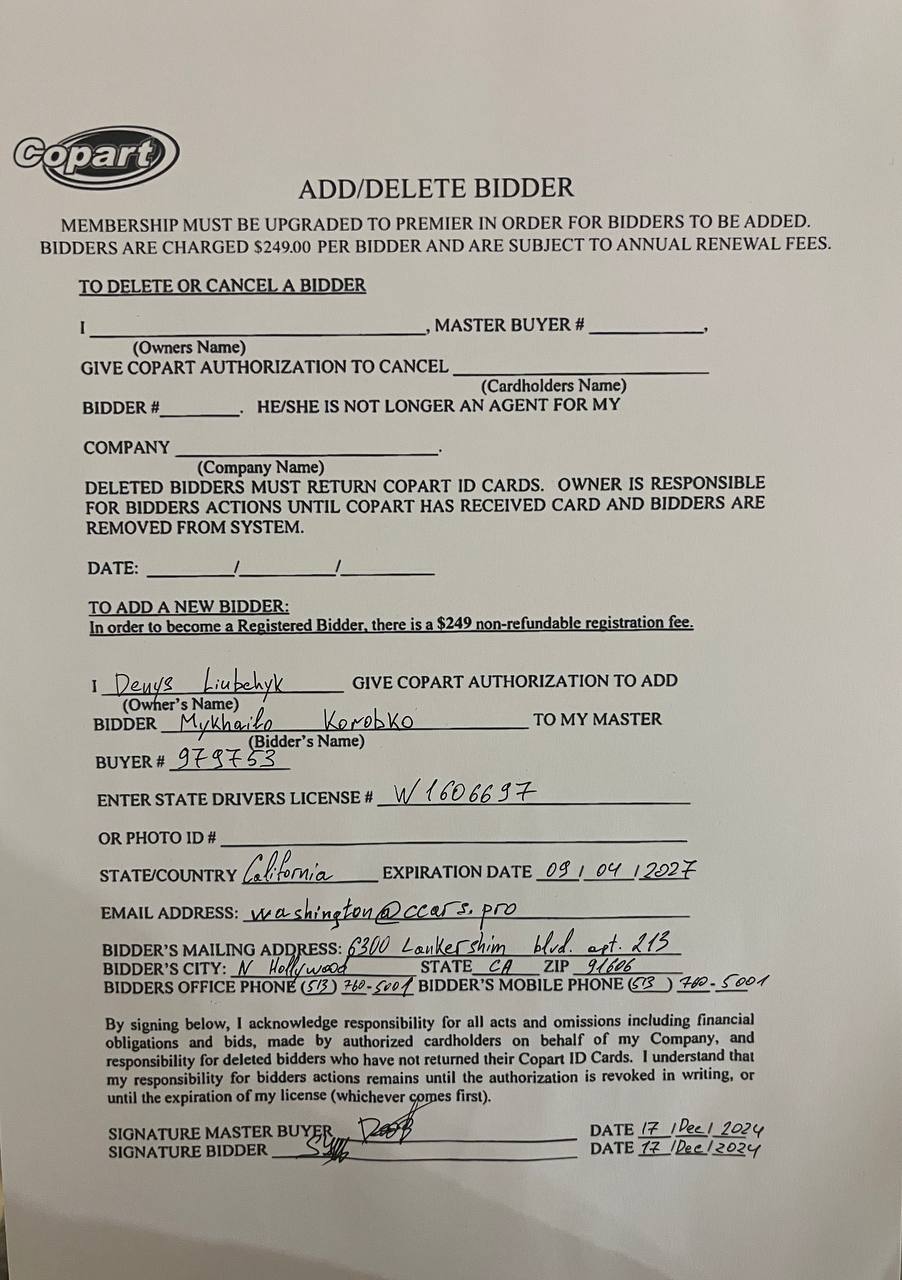 Copart
ADD/DELETE BIDDER
MEMBERSHIP MUST BE UPGRADED TO PREMIER IN ORDER FOR BIDDERS TO BE ADDED.
BIDDERS ARE CHARGED $249.00 PER BIDDER AND ARE SUBJECT TO ANNUAL RENEWAL FEES.
TO DELETE OR CANCEL A BIDDER
I ____________________, MASTER BUYER # __________,
(Owners Name)
GIVE COPART AUTHORIZATION TO CANCEL ____________________
(Cardholders Name)
BIDDER #________. HE/SHE IS NOT LONGER AN AGENT FOR MY
COMPANY ____________________.
(Company Name)
DELETED BIDDERS MUST RETURN COPART ID CARDS. OWNER IS RESPONSIBLE
FOR BIDDERS ACTIONS UNTIL COPART HAS RECEIVED CARD AND BIDDERS ARE
REMOVED FROM SYSTEM.
DATE: ________/________/________
TO ADD A NEW BIDDER:
In order to become a Registered Bidder, there is a $249 non-refundable registration fee.
I Denys Liubchyk GIVE COPART AUTHORIZATION TO ADD
(Owner's Name)
BIDDER Mykhailo Korobko TO MY MASTER
(Bidder's Name)
BUYER # 979753
ENTER STATE DRIVERS LICENSE # W1606697
OR PHOTO ID # ____________________
STATE/COUNTRY California EXPIRATION DATE 09 / 04 / 2027
EMAIL ADDRESS: washington@ccars.pro
BIDDER'S MAILING ADDRESS: 6300 Lankershim blvd. apt. 213
BIDDER'S CITY: N Hollywood STATE CA ZIP 91606
BIDDERS OFFICE PHONE (513) 760-5001 BIDDER'S MOBILE PHONE (513) 760-5001
By signing below, I acknowledge responsibility for all acts and omissions including financial
obligations and bids, made by authorized cardholders on behalf of my Company, and
responsibility for deleted bidders who have not returned their Copart ID Cards. I understand that
my responsibility for bidders actions remains until the authorization is revoked in writing, or
until the expiration of my license (whichever comes first).
SIGNATURE MASTER BUYER DATE 17 / Dec / 2024
SIGNATURE BIDDER DATE 17 / Dec / 2024